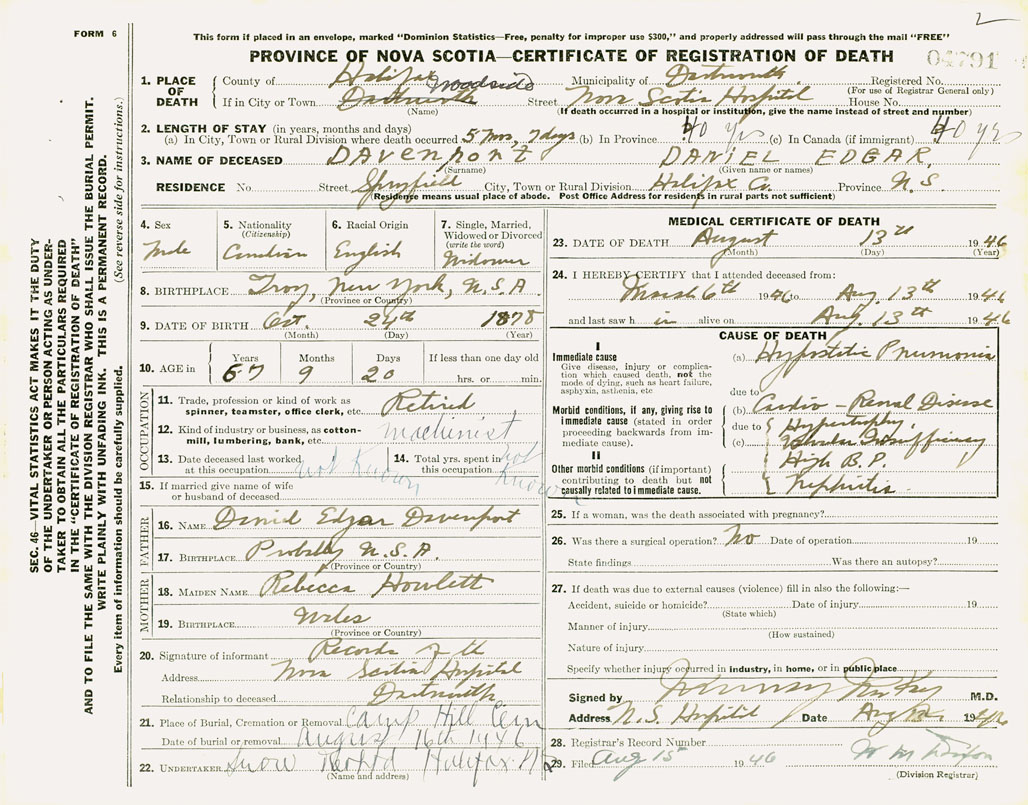 2
FORM 6
This form if placed in an envelope, marked "Dominion Statistics—Free, penalty for improper use $300," and properly addressed will pass through the mail "FREE"
PROVINCE OF NOVA SCOTIA—CERTIFICATE OF REGISTRATION OF DEATH
04791
SEC. 46—VITAL STATISTICS ACT MAKES IT THE DUTY
OF THE UNDERTAKER OR PERSON ACTING AS UNDER-
TAKER TO OBTAIN ALL THE PARTICULARS REQUIRED
IN THE "CERTIFICATE OF REGISTRATION OF DEATH"
AND TO FILE THE SAME WITH THE DIVISION REGISTRAR WHO SHALL ISSUE THE BURIAL PERMIT.
WRITE PLAINLY WITH UNFADING INK. THIS IS A PERMANENT RECORD.
Every item of information should be carefully supplied. (See reverse side for instructions.)
1. PLACE OF DEATH
County of Halifax Municipality of Dartmouth Registered No.
(For use of Registrar General only)
Woodside
If in City or Town Dartmouth Street Nova Scotia Hospital House No.
(Name) (If death occurred in a hospital or institution, give the name instead of street and number)
2. LENGTH OF STAY (in years, months and days)
(a) In City, Town or Rural Division where death occurred 5 mos, 7 days (b) In Province 40 yrs (c) In Canada (if immigrant) 40 yrs
3. NAME OF DECEASED Davenport DANIEL EDGAR.
(Surname) (Given name or names)
RESIDENCE No. Street Spryfield City, Town or Rural Division Halifax Co. Province N.S.
(Residence means usual place of abode. Post Office Address for residents in rural parts not sufficient)
4. Sex
Male
5. Nationality
(Citizenship)
Canadian
6. Racial Origin
English
7. Single, Married,
Widowed or Divorced
(write the word)
Widower
8. BIRTHPLACE Troy, New York, U.S.A.
(Province or Country)
9. DATE OF BIRTH Oct. 24th 1878
(Month) (Day) (Year)
10. AGE in
Years Months Days If less than one day old
67 9 20 hrs. or min.
OCCUPATION
11. Trade, profession or kind of work as
spinner, teamster, office clerk, etc. Retired
12. Kind of industry or business, as cotton-
mill, lumbering, bank, etc. machinist
13. Date deceased last worked
at this occupation not Known
14. Total yrs. spent in
this occupation not Known
15. If married give name of wife
or husband of deceased
FATHER
16. NAME Daniel Edgar Davenport
17. BIRTHPLACE Probably U.S.A.
(Province or Country)
MOTHER
18. MAIDEN NAME Rebecca Howlett
19. BIRTHPLACE Wales
(Province or Country)
20. Signature of informant Records of the
Address Nova Scotia Hospital
Relationship to deceased Dartmouth
21. Place of Burial, Cremation or Removal Camp Hill Cem
Date of burial or removal August 16th 1946
22. UNDERTAKER Snow Halifax N.S.
(Name and address)
MEDICAL CERTIFICATE OF DEATH
23. DATE OF DEATH August 13th 1946
(Month) (Day) (Year)
24. I HEREBY CERTIFY that I attended deceased from:
March 6th 1946 to Aug. 13th 1946
and last saw h im alive on Aug. 13th 1946
CAUSE OF DEATH
I
Immediate cause
Give disease, injury or complica-
tion which caused death, not the
mode of dying, such as heart failure,
asphyxia, asthenia, etc
(a) Hypostatic Pneumonia
due to
Morbid conditions, if any, giving rise to
immediate cause (stated in order
proceeding backwards from im-
mediate cause).
(b) Cardio-Renal Disease
due to Hypertrophy,
(c) Valvular Insufficiency
II
Other morbid conditions (if important)
contributing to death but not
causally related to immediate cause.
High B.P.
Nephritis
25. If a woman, was the death associated with pregnancy?
26. Was there a surgical operation? No Date of operation 19
State findings Was there an autopsy?
27. If death was due to external causes (violence) fill in also the following:—
Accident, suicide or homicide? Date of injury 19
(State which)
Manner of injury
(How sustained)
Nature of injury
Specify whether injury occurred in industry, in home, or in public place
Signed by M.D.
Address N.S. Hospital Date Aug 13th 1946
28. Registrar's Record Number
29. Filed Aug 15th 1946 W M
(Division Registrar)